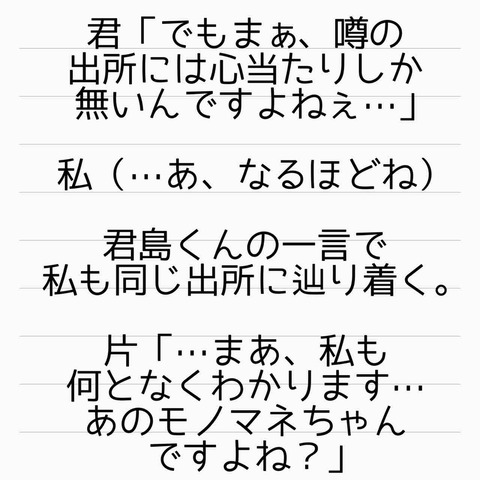 君「でもまぁ、噂の
出所には心当たりしか
無いんですよねぇ…」
私（…あ、なるほどね）
君島くんの一言で
私も同じ出所に辿り着く。
片「…まあ、私も
何となくわかります…
あのモノマネちゃん
ですよね？」